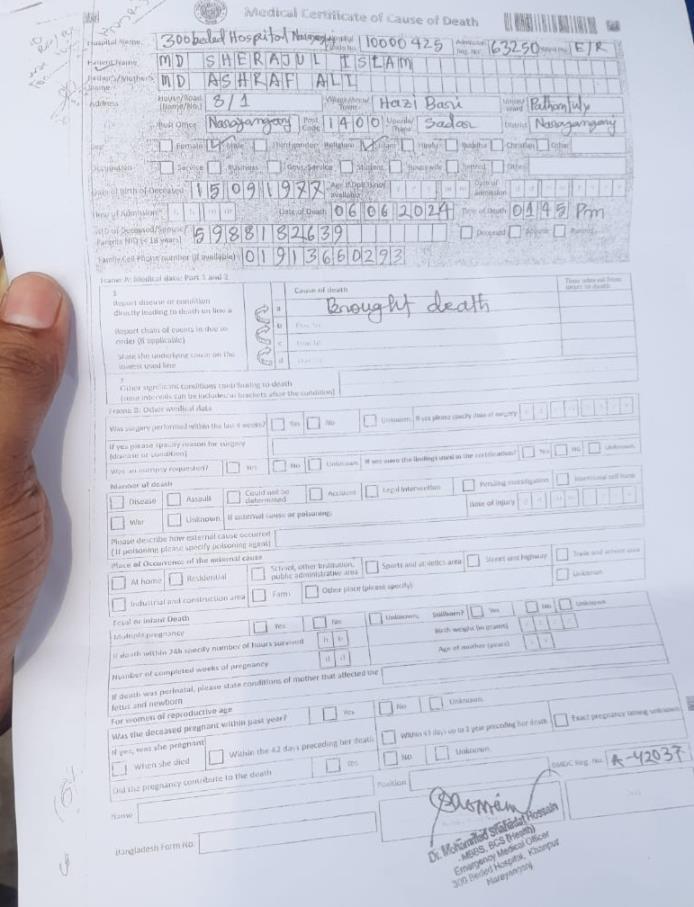 Medical Certificate of Cause of Death
Hospital Name 300 beded Hospital Narayanganj 10000425 Admission Reg. No: 63250 E/R
Patient Name MD SHERAJUL ISLAM
Father's/Mother's Name MD ASHRAF ALI
Address House/Road (Name/No.) 8/1 Hazi Bari Ward Pathantuly
Post Office Narayanganj Post Code 1400 Sadar District Narayanganj
Sex Female Male Third gender Religion Islam Hindu Buddha Christian Other
Occupation Service Business Govt. Service Student Housewife Other
Date of birth of Deceased 15091977 Age if DoB is not available Date of admission
Time of Admission Date of Death 06062024 Time of Death 0145 Pm
NID of Deceased/Spouse/Parents NID (< 18 years) 5988182639 Deceased Spouse Parents
Family Cell Phone number (if available) 01913660293
Frame A: Medical data: Part 1 and 2
1 Cause of death Time interval from onset to death
Report disease or condition directly leading to death on line a
a Brought death
Report chain of events in due to order (if applicable)
b Due to:
c Due to:
State the underlying cause on the lowest used line
d Due to:
2
Other significant conditions contributing to death
(time intervals can be included in brackets after the condition)
Frame B: Other medical data
Was surgery performed within the last 4 weeks? Yes No Unknown If yes please specify date of surgery
If yes please specify reason for surgery (disease or condition)
Was an autopsy requested? Yes No Unknown If yes were the findings used in the certification? Yes No Unknown
Manner of death
Disease Assault Could not be determined Accident Legal intervention Pending investigation Intentional self harm
War Unknown If external cause or poisoning: Date of injury
Please describe how external cause occurred
(If poisoning please specify poisoning agent)
Place of Occurrence of the external cause
At home Residential School, other institution, public administrative area Sports and athletics area Street and highway Trade and service area
Industrial and construction area Farm Other place (please specify) Unknown
Fetal or infant Death
Multiple pregnancy Yes No Unknown Stillborn? Yes No Unknown
If death within 24h specify number of hours survived h h Birth weight (in grams)
Number of completed weeks of pregnancy d d Age of mother (years)
If death was perinatal, please state conditions of mother that affected the fetus and newborn
For women of reproductive age
Was the deceased pregnant within past year? Yes No Unknown
If yes, was she pregnant
When she died Within the 42 days preceding her death Within 43 days up to 1 year preceding her death Exact pregnancy timing unknown
Did the pregnancy contribute to the death Yes No Unknown
Name Position BMDC Reg. No: A-42037
Dr. Mohammad Shahadat Hossain
MBBS, BCS (Health)
Emergency Medical Officer
300 Beded Hospital, Khanpur
Narayanganj
Bangladesh Form No.